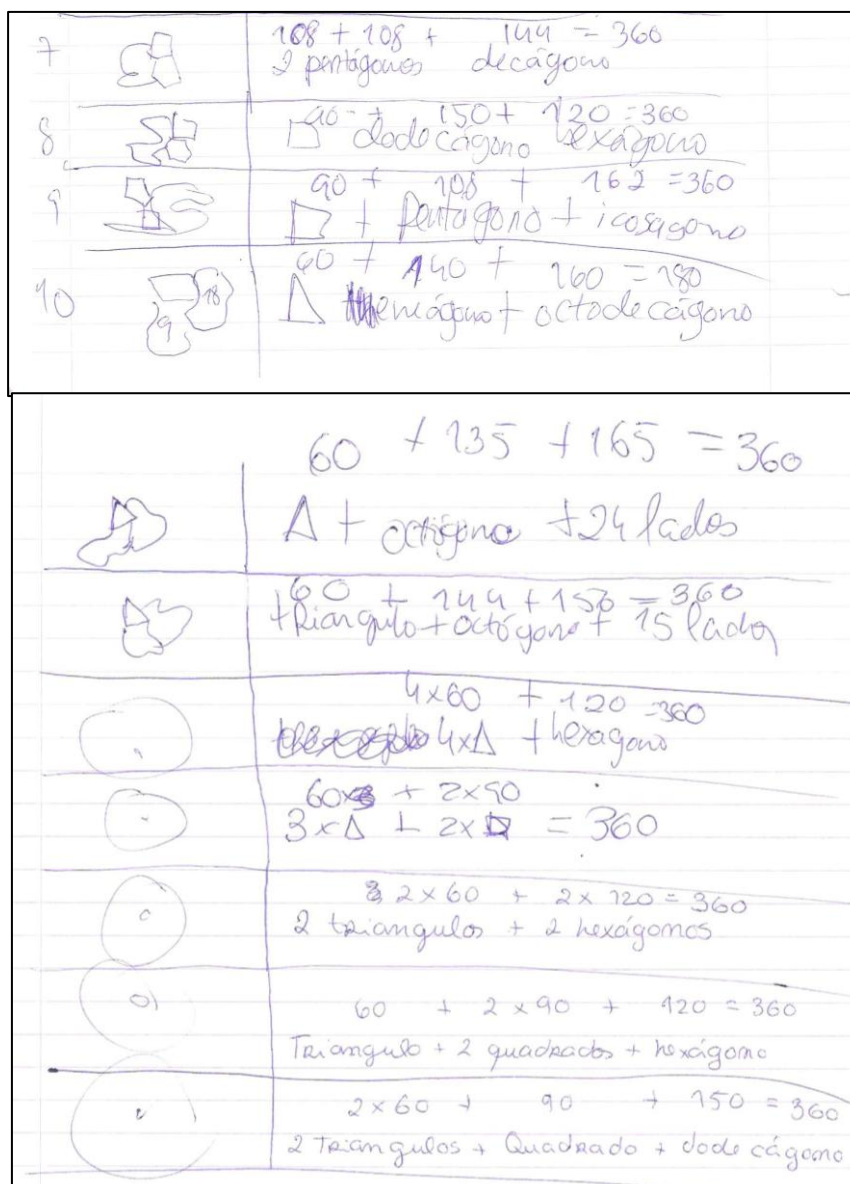 7
108 + 108 + 144 = 360
2 pentágonos decágono
8
90 + 150 + 120 = 360
dodecágono hexágono
9
90 + 108 + 162 = 360
+ pentagono + icosagono
10
9
18
60 + 140 + 160 = 180
Δ eneágono + octodecágono
60 + 135 + 165 = 360
Δ + octógono + 24 lados
60 + 144 + 156 = 360
triangulo + octógono + 15 lados
4x60 + 120 = 360
4xΔ + hexagono
60x3 + 2x90
3xΔ + 2x□ = 360
2x60 + 2x120 = 360
2 triangulos + 2 hexágonos
60 + 2x90 + 120 = 360
Triangulo + 2 quadrados + hexágono
2x60 + 90 + 150 = 360
2 Triangulos + Quadrado + dodecágono